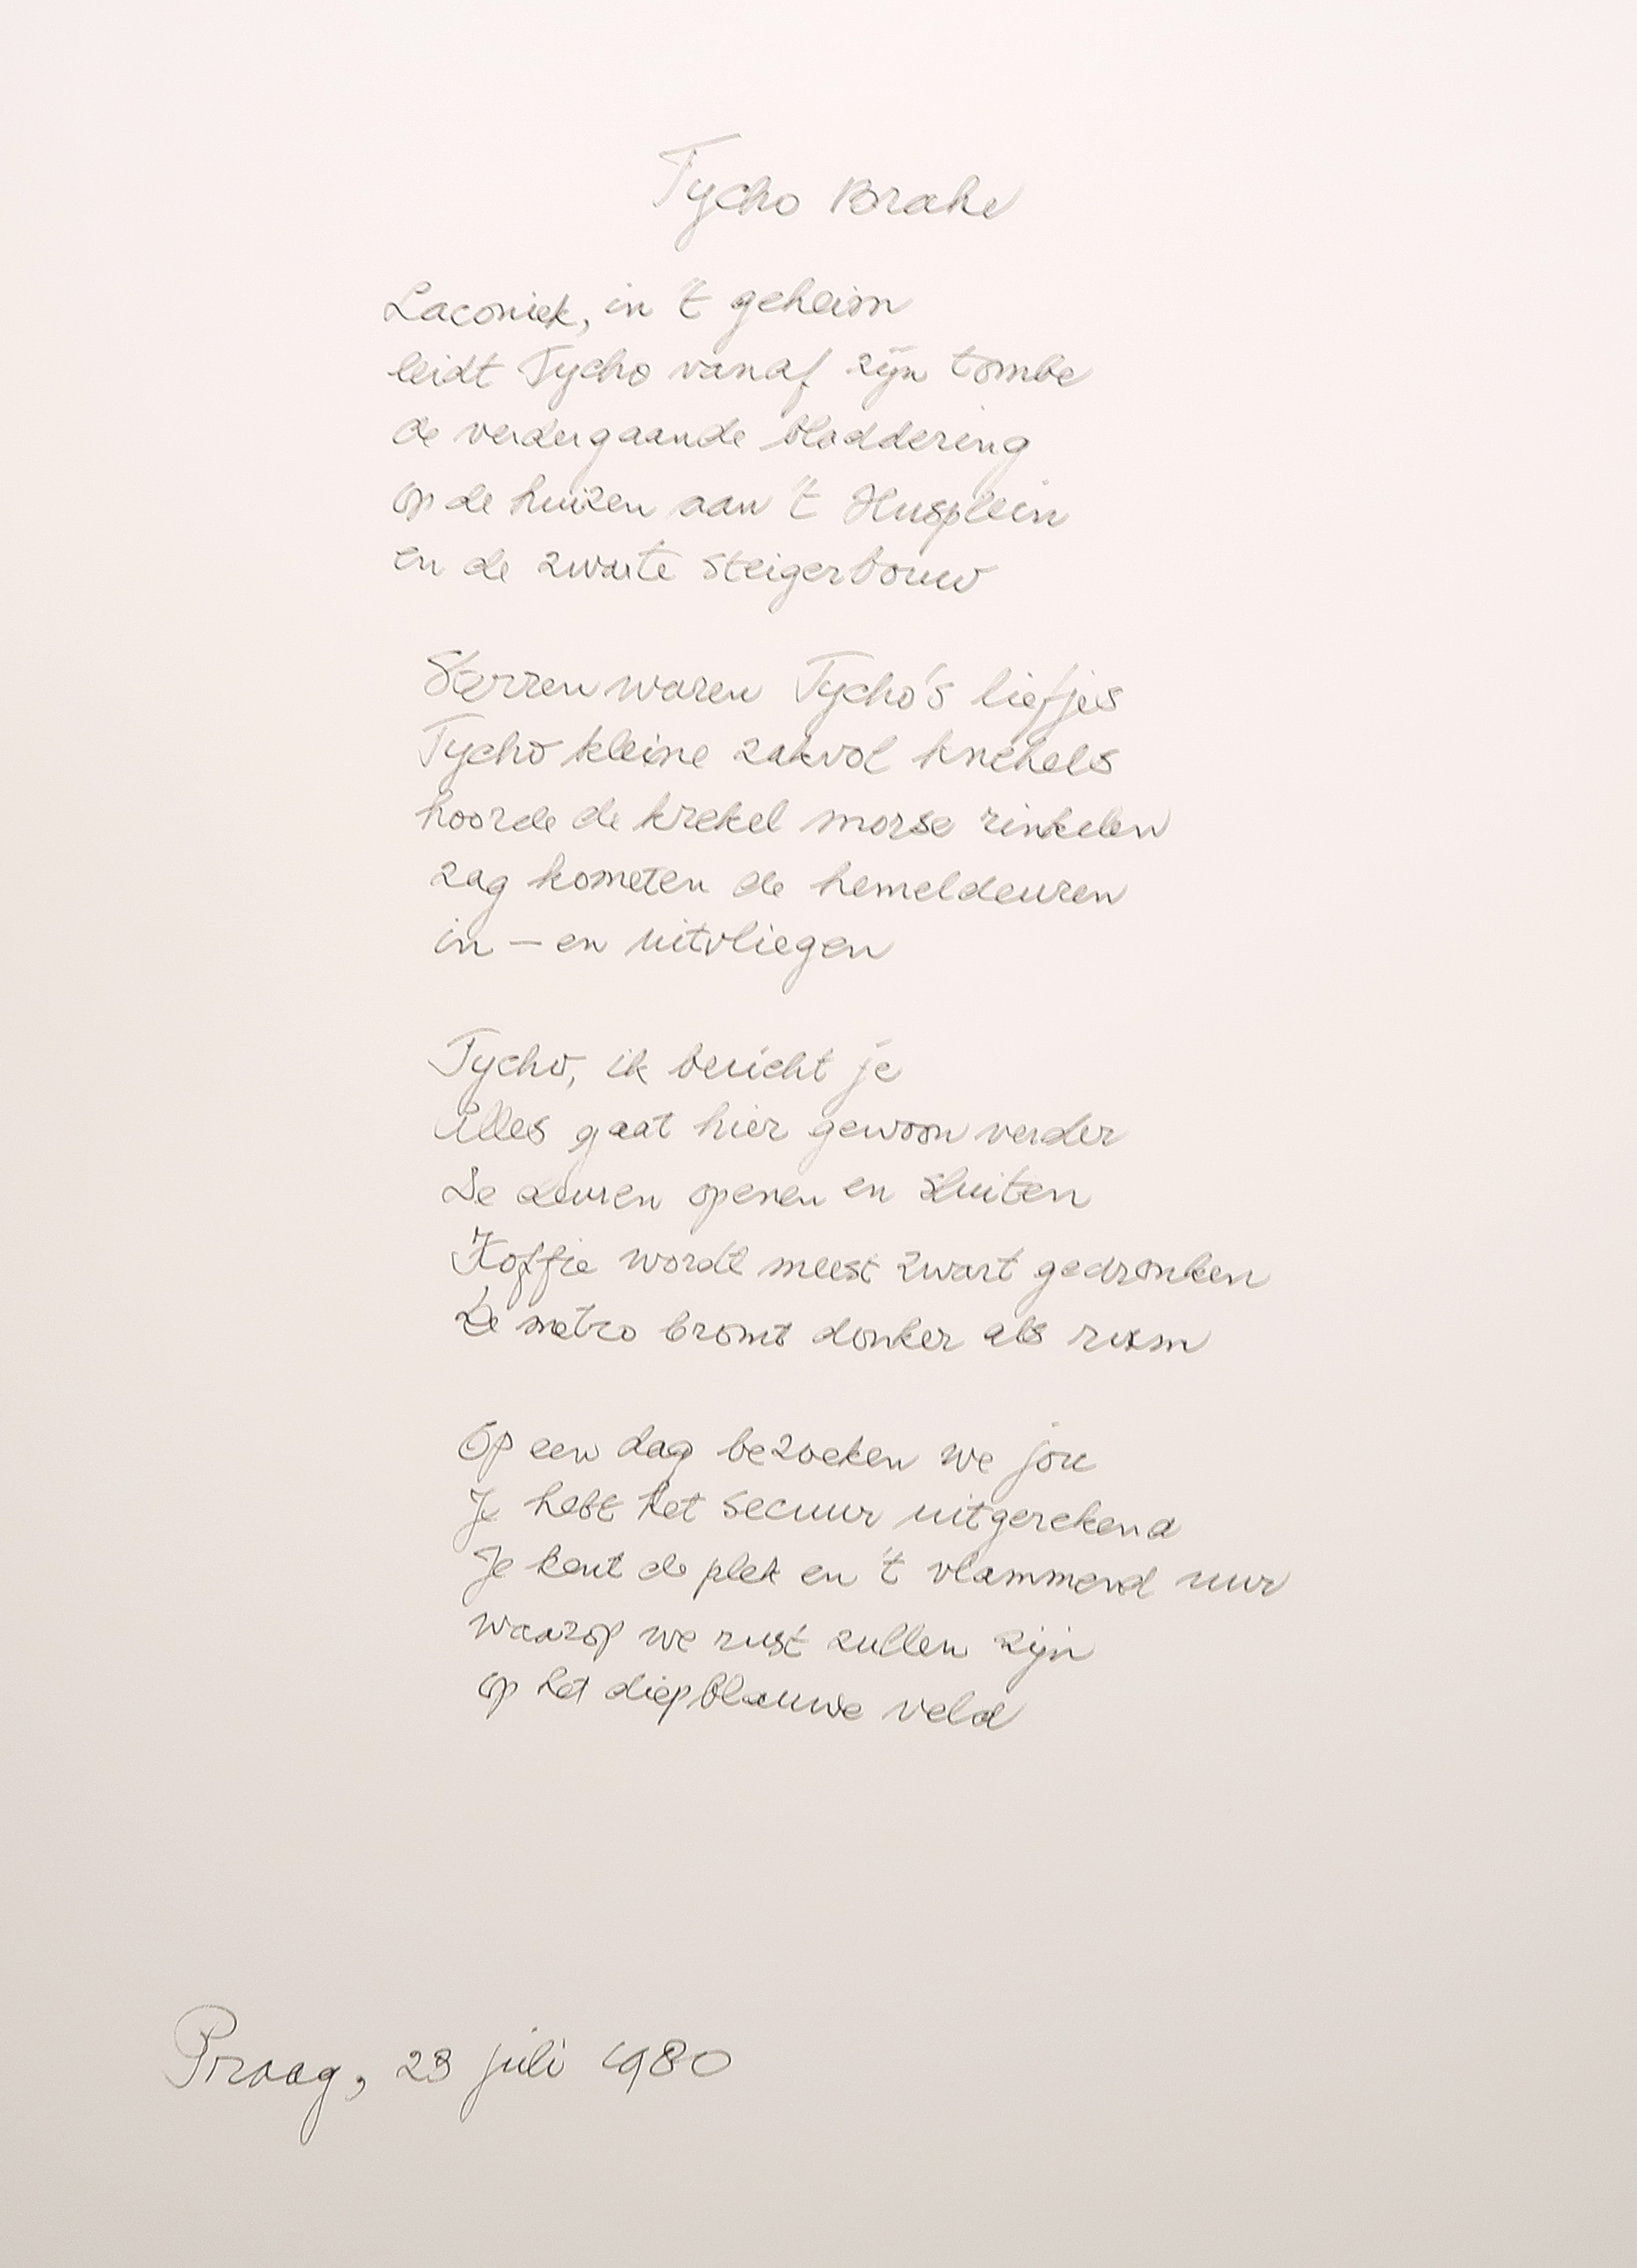 Tycho Brahe
Laconiek, in 't geheim
leidt Tycho vanaf zijn tombe
de verdergaande bladdering
op de huizen aan 't Husplein
en de zwarte steigerbouw
Sterren waren Tycho's liefjes
Tycho kleine zakvol knekels
hoorde de krekel morse rinkelen
zag kometen de hemeldeuren
in – en uitvliegen
Tycho, ik bericht je
Alles gaat hier gewoon verder
De deuren openen en sluiten
Koffie wordt meest zwart gedronken
De metro bromt donker als rum
Op een dag bezoeken we jou
Je hebt het secuur uitgerekend
Je kent de plek en 't vlammend uur
waarop we rust zullen zijn
op het diepblauwe veld
Praag, 23 juli 1980